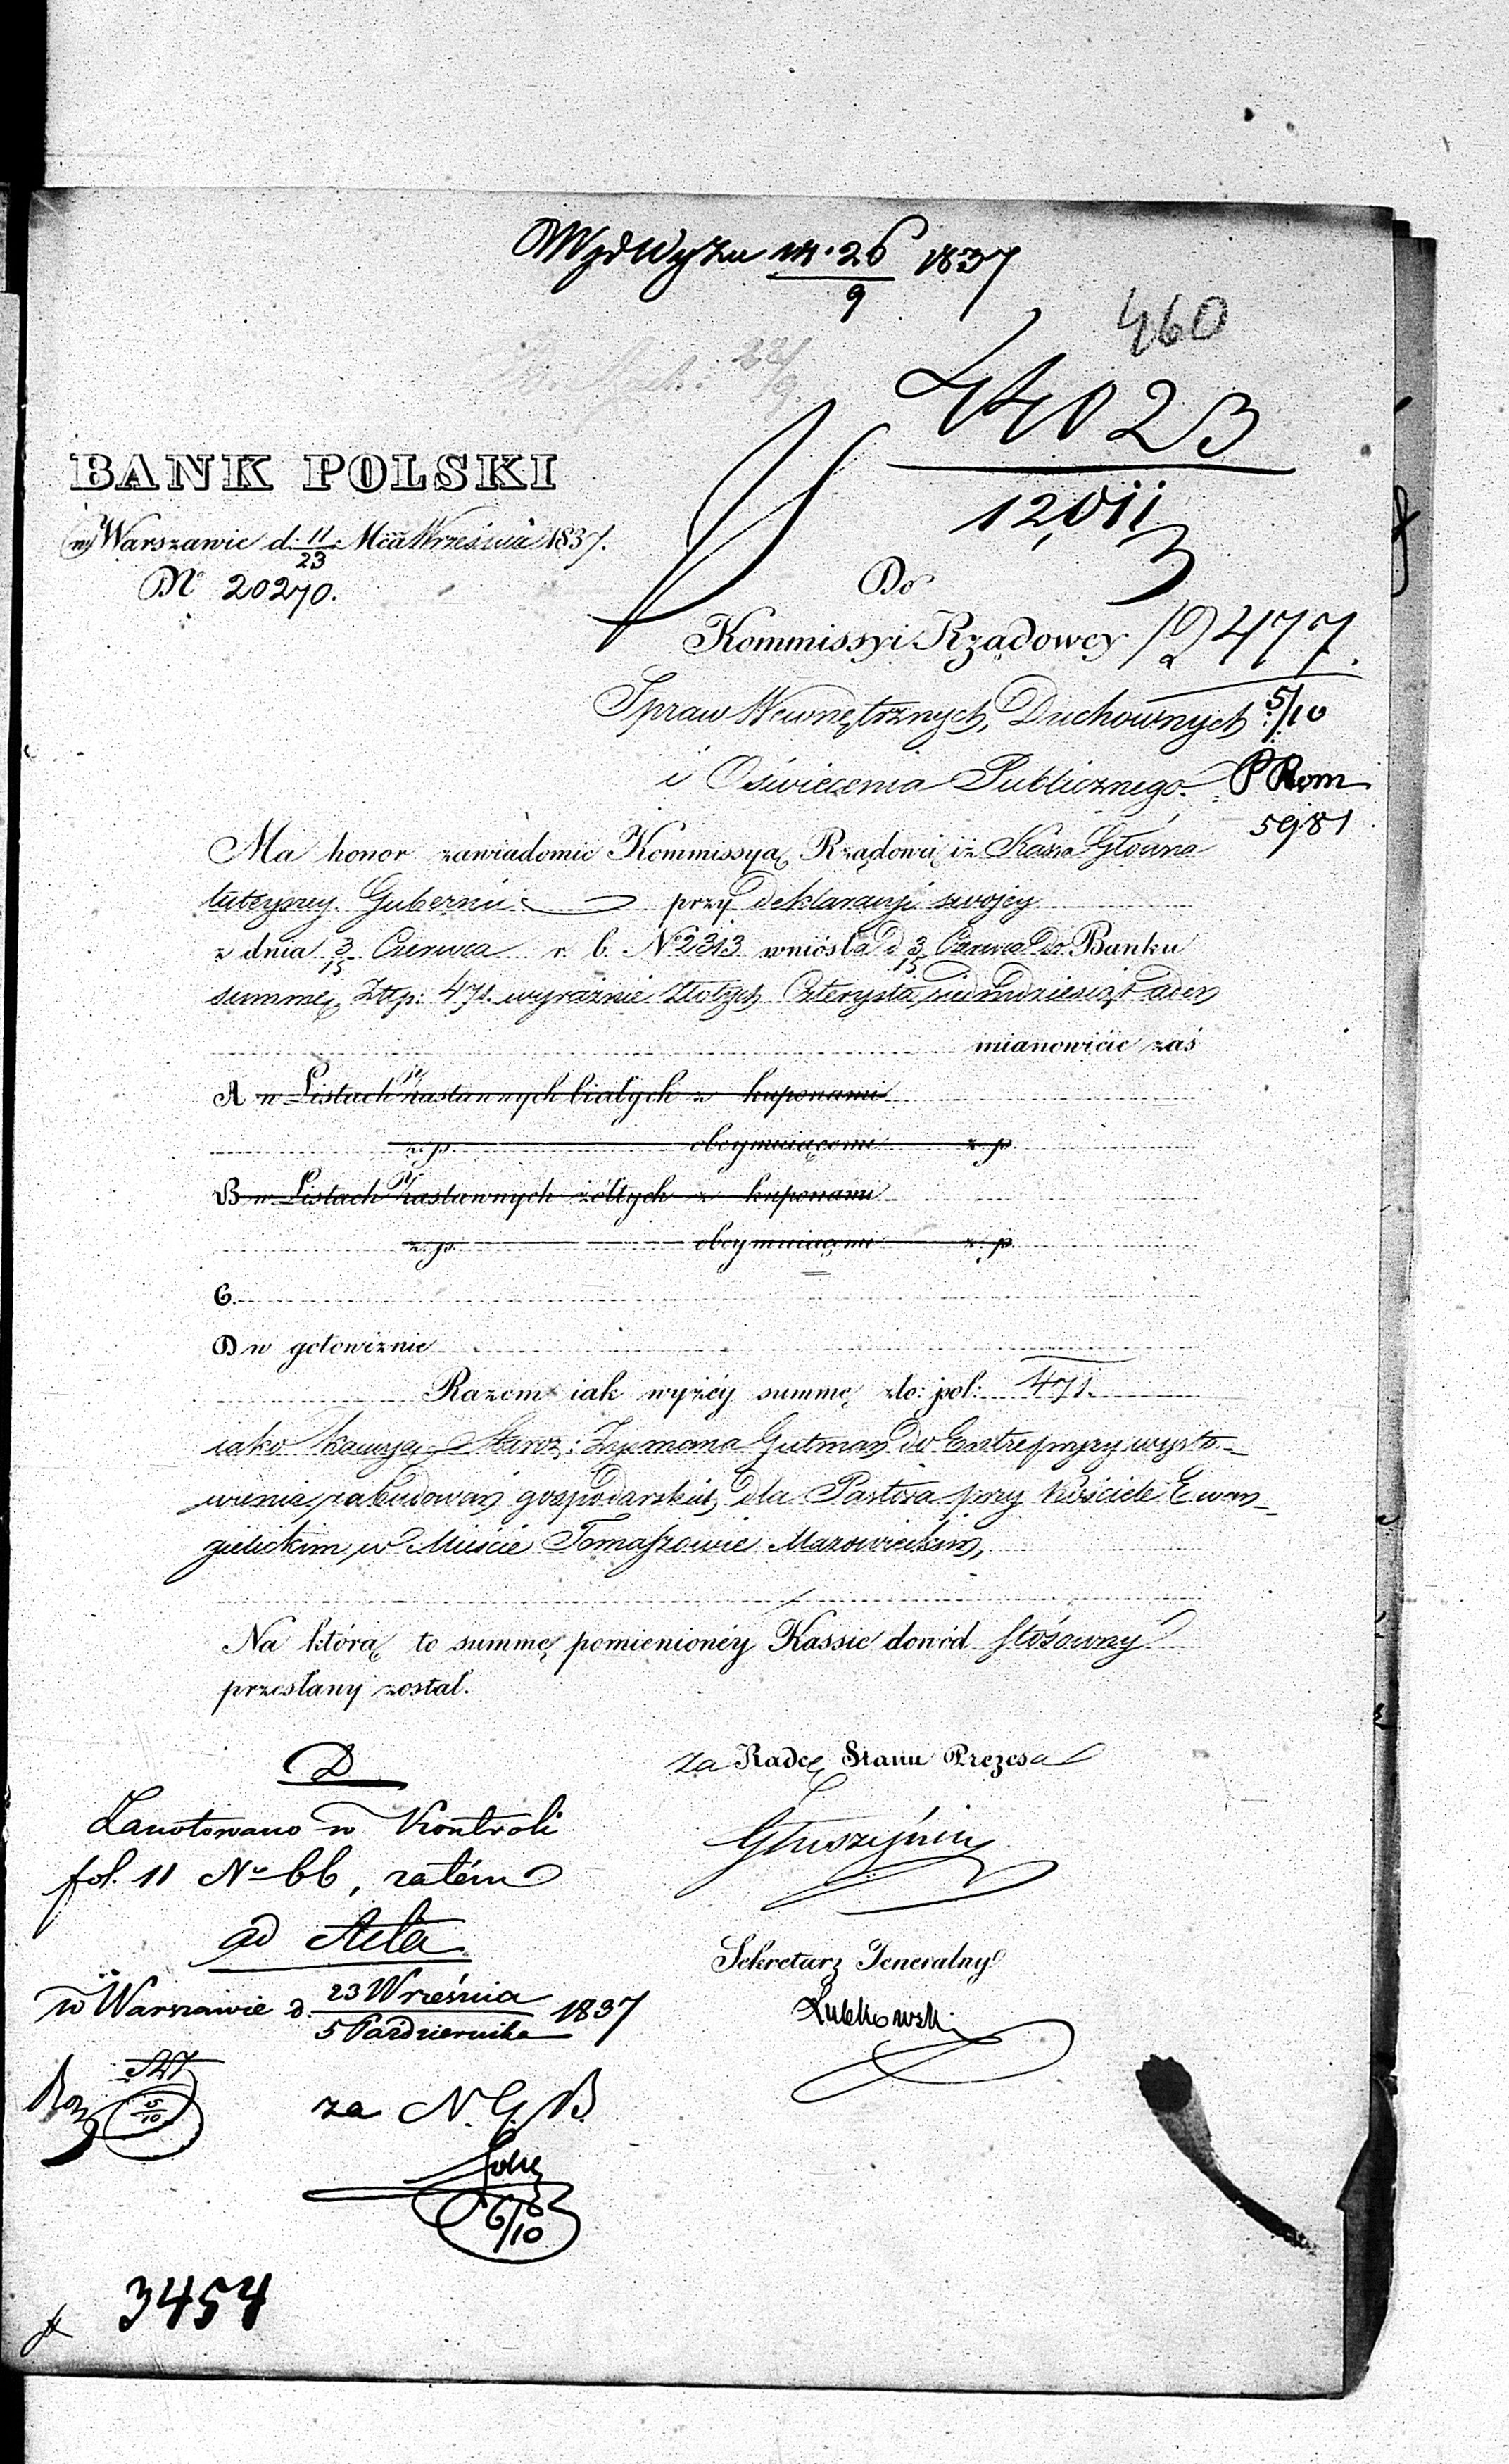 26/9 1837
460
44023
12,011
3
BANK POLSKI
w Warszawie d. 11/23 Mca Września 1837.
No 20270.
Do
Kommissyi Rządowey
12477.
Spraw Wewnętrznych, Duchownych
5/10
i Oświecenia Publicznego.
5981
Ma honor zawiadomić Kommissyą Rządową iż Kassa Główna
tuteyszey Gubernii przy deklaracyi swojey
z dnia 3/15 Czerwca r. b. No 2313 wniosła d 3/15 Czerwca do Banku
summę Złtp: 471. wyraźnie Złotych Czterysta siedmdziesiąt jeden
mianowicie zaś
A w Listach zastawnych białych z kuponami
z. p. obeymuiącemi z. p.
B w Listach zastawnych żółtych z kuponami
z. p. obeymuiącemi z. p.
C.
D w gotowiznie
Razem iak wyżéy summę zło: pol: 471.
iako kaucyą Staroz: Zymana Gutman do Entrepryzy wysta-
wienia zabudowań gospodarskich dla Pastora przy kościele Ewan-
gielickim w Mieście Tomaszowie Mazowieckim,
Na którą to summę pomienionéy Kassie dowód stósowny
przesłany został.
D
za Radcę Stanu Prezesa
Zanotowano w Kontroli
fol. 11 No 66, zatém
ad Acta
Sekretarz Jeneralny
Lubkowski
w Warszawie d. 23 Września / 5 Października 1837
5/10
za N. G. B.
6/10
3454